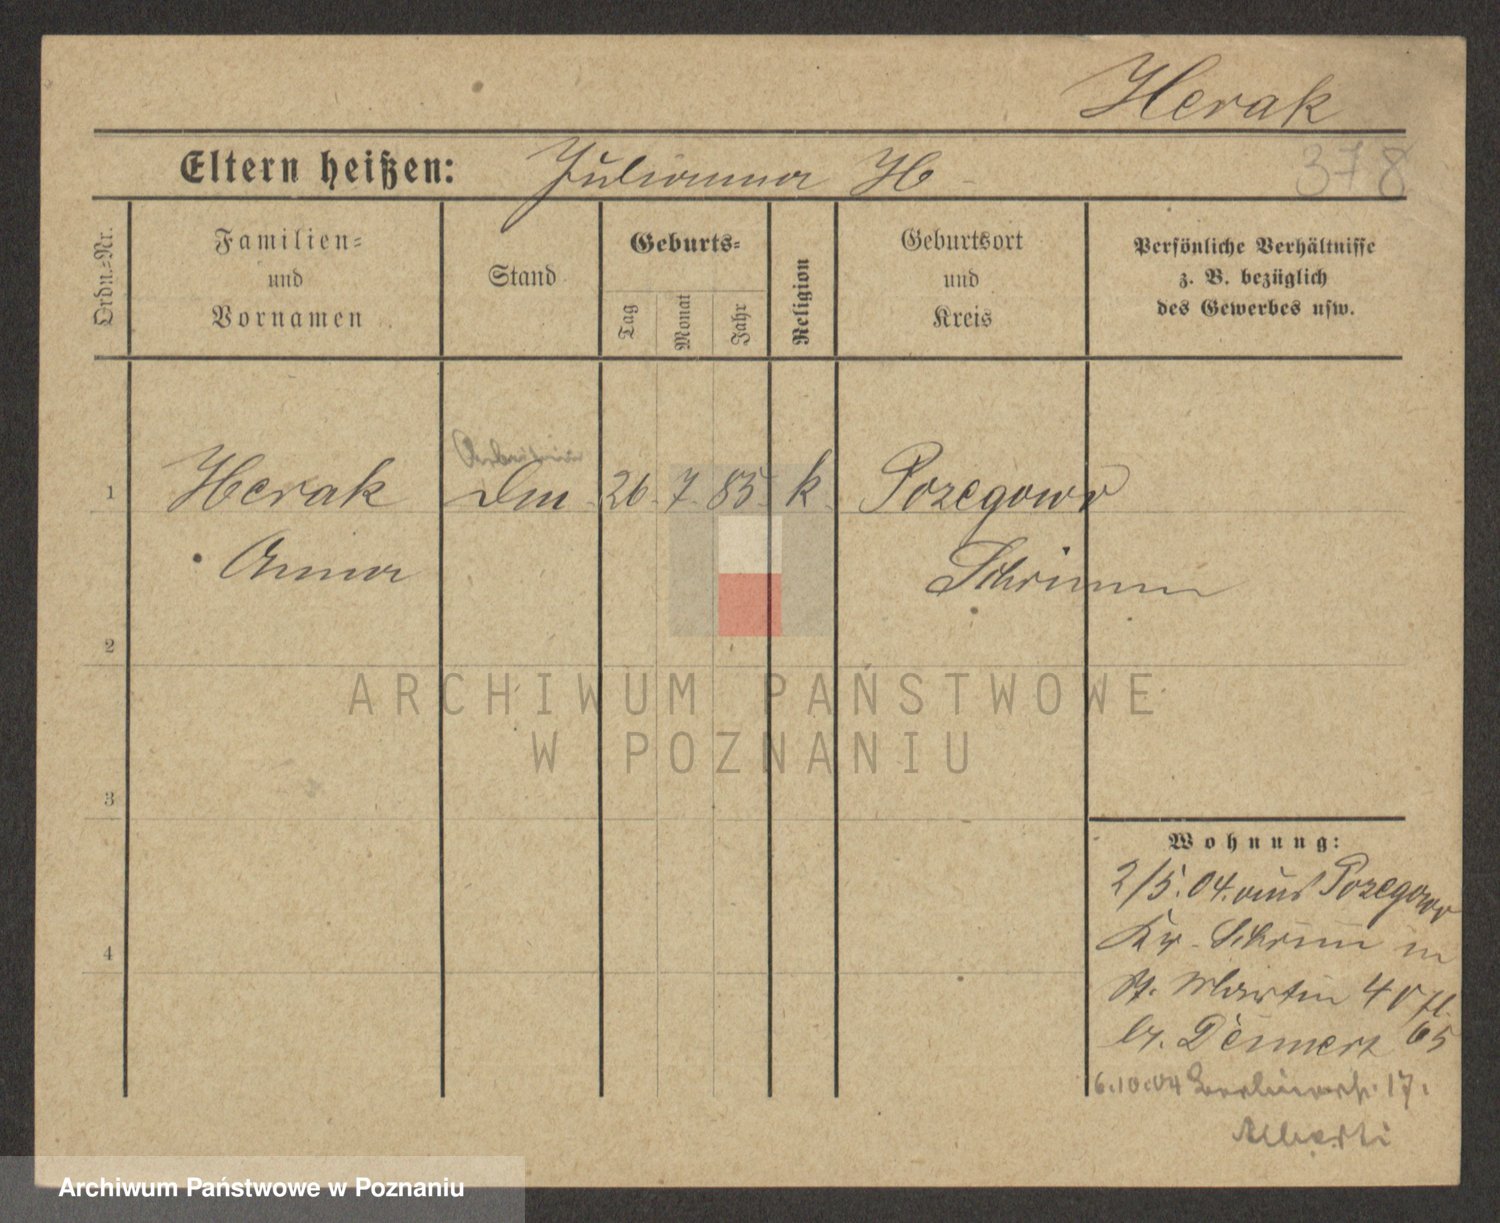 Herak
Eltern heißen: Julianna H
378
Ordn.=Nr.
Familien=
und
Vornamen
Stand
Geburts=
Tag
Monat
Jahr
Religion
Geburtsort
und
Kreis
Persönliche Verhältnisse
z. B. bezüglich
des Gewerbes usw.
1 Herak 26. 7. 85. k. Pozegowo
Anna Schrimm
2
3
4
Wohnung:
2/5. 04. aus Pozegowo
Kr. Schrimm in
St. Martin 40
65
6.10.04 17.
ARCHIWUM PAŃSTWOWE
W POZNANIU
Archiwum Państwowe w Poznaniu